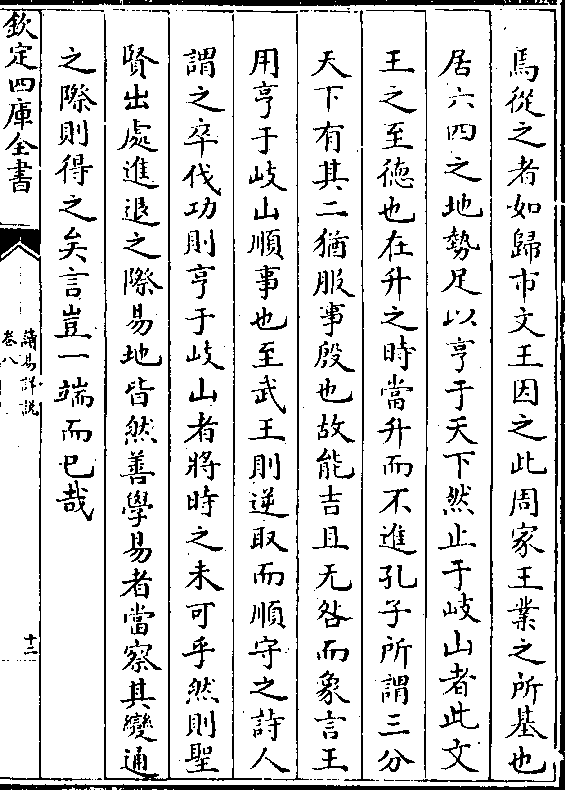 焉從之者如歸市文王因之此周家王業之所基也
居六四之地勢足以亨于天下然止于岐山者此文
王之至徳也在升之時當升而不進孔子所謂三分
天下有其二猶服事殷也故能吉且无咎而象言王
用亨于岐山順事也至武王則逆取而順守之詩人
謂之卒伐功則亨于岐山者將時之未可乎然則聖
賢出處進退之際易地皆然善學易者當察其變通
之際則得之矣言豈一端而已哉
欽定四庫全書
讀易詳說
卷八
十三